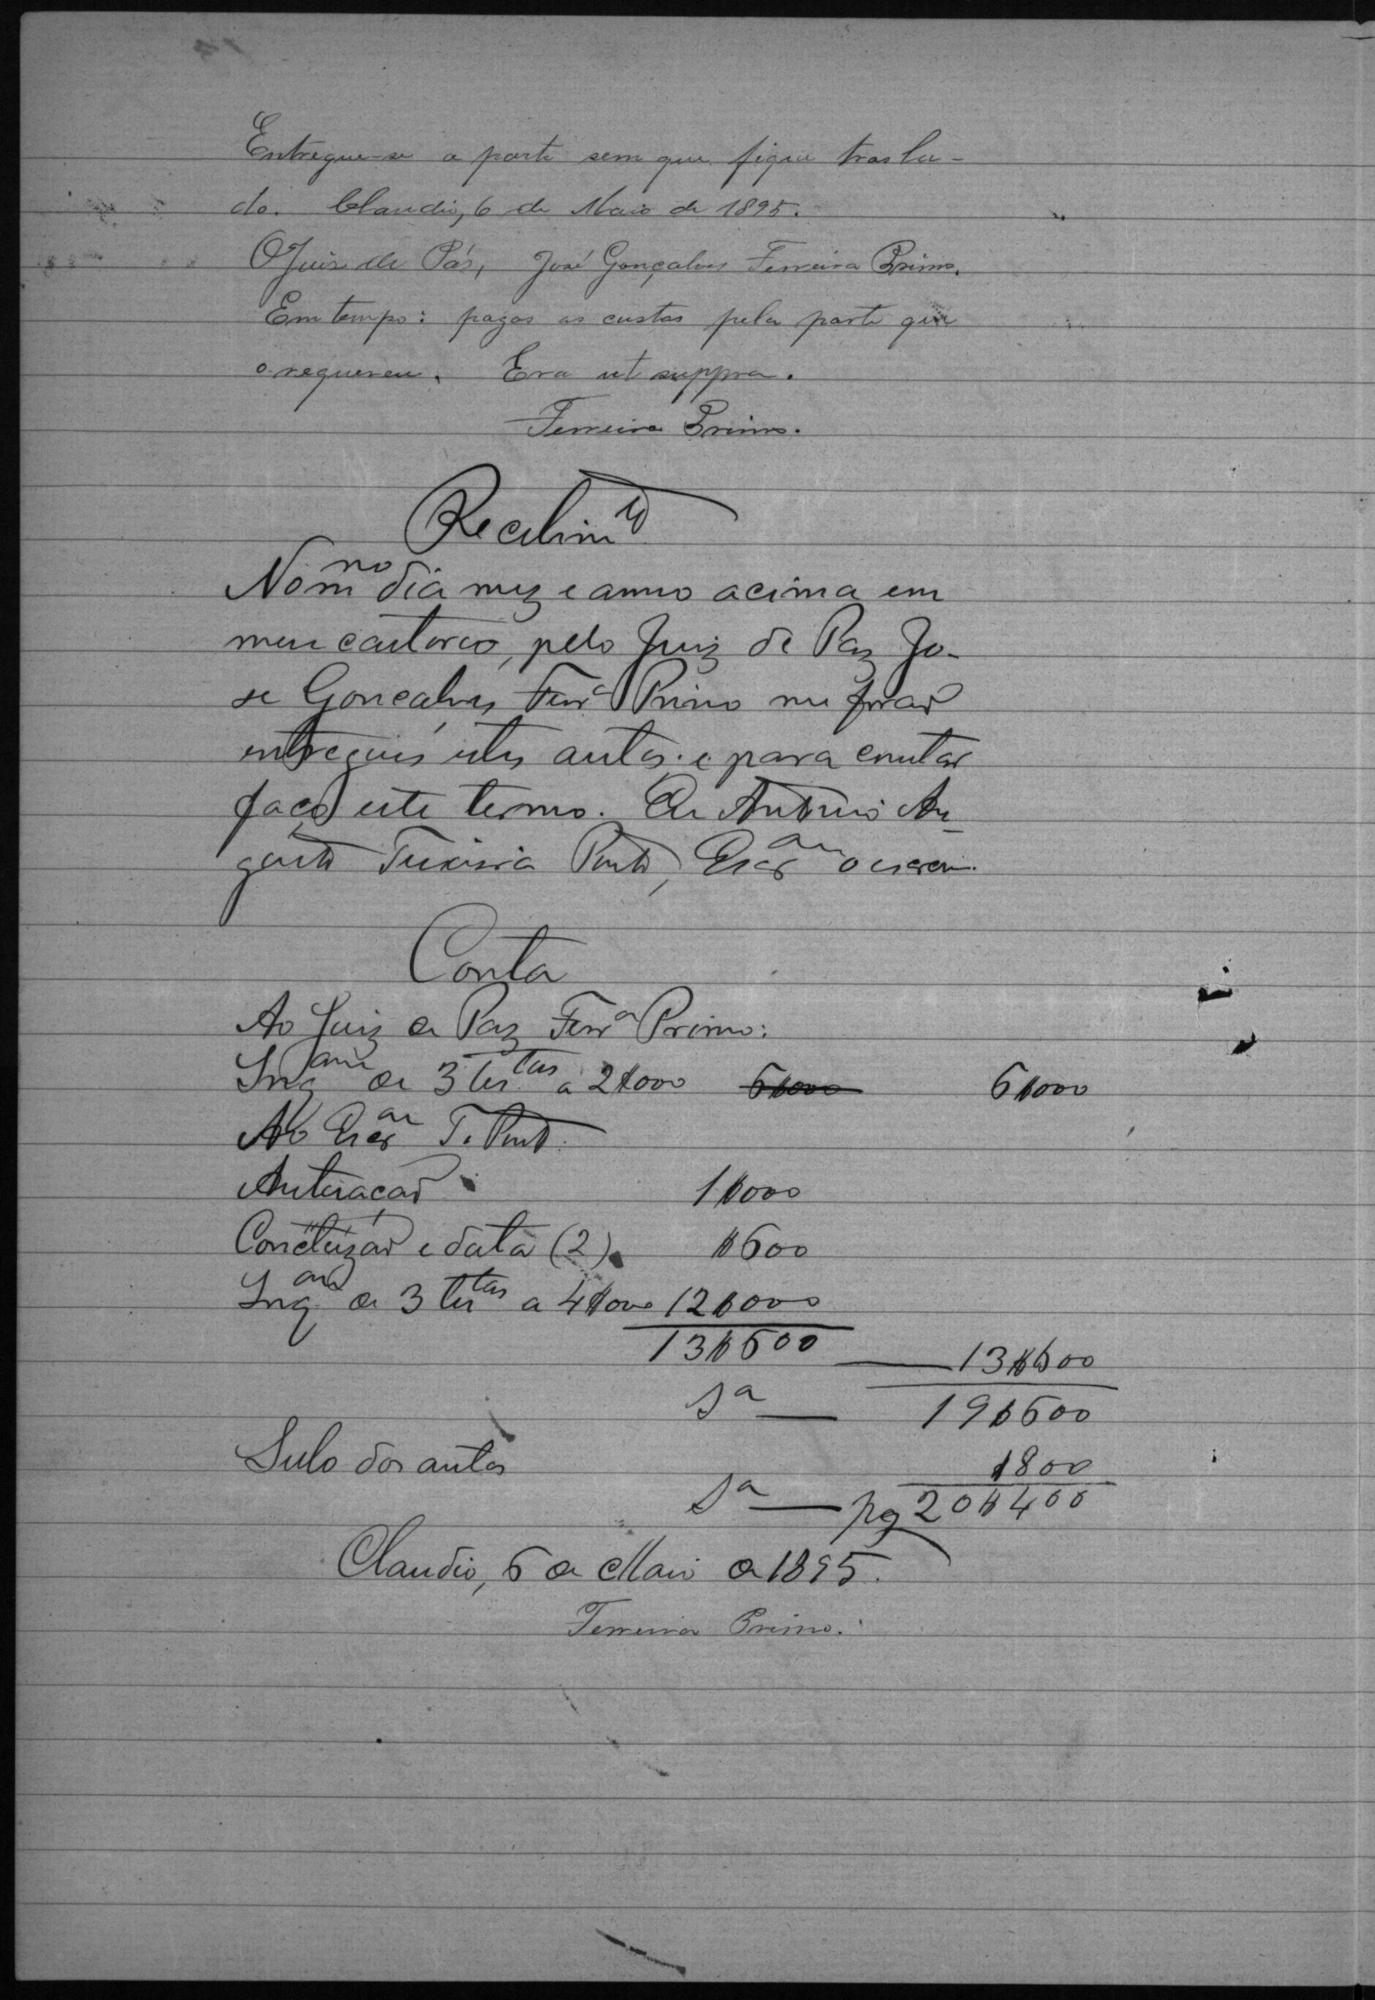 Entregue-se a parte sem que fique trasla-
do. Claudio, 6 de Maio de 1895.
O Juis de Pás, José Gonçalves Ferreira Primo.
Em tempo: pagas as custas pela parte que
o requereu. Era ut suppra.
Ferreira Primo.
Recebimto
No mmo dia mez e anno acima em
meu cartorio, pelo Juiz de Paz Jo-
se Gonçalves Ferra Primo me forão
entregues estes autos. e para constar
faço este termo. Eu Antonio Au-
gusto Teixeira Pinto, Escram o escrevi.
Conta
Ao Juiz de Paz Ferra Primo:
Inqam de 3 testas a 2$000 6$000 6$000
Ao Escram T. Pinto.
Autuação 1$000
Conclusão e data (2) $600
Inqam de 3 testas a 4$000 12$000
13$600 13$600
Sa 19$600
Sello dos autos $800
Sa pg 20$400
Claudio, 6 de Maio de 1895.
Ferreira Primo.